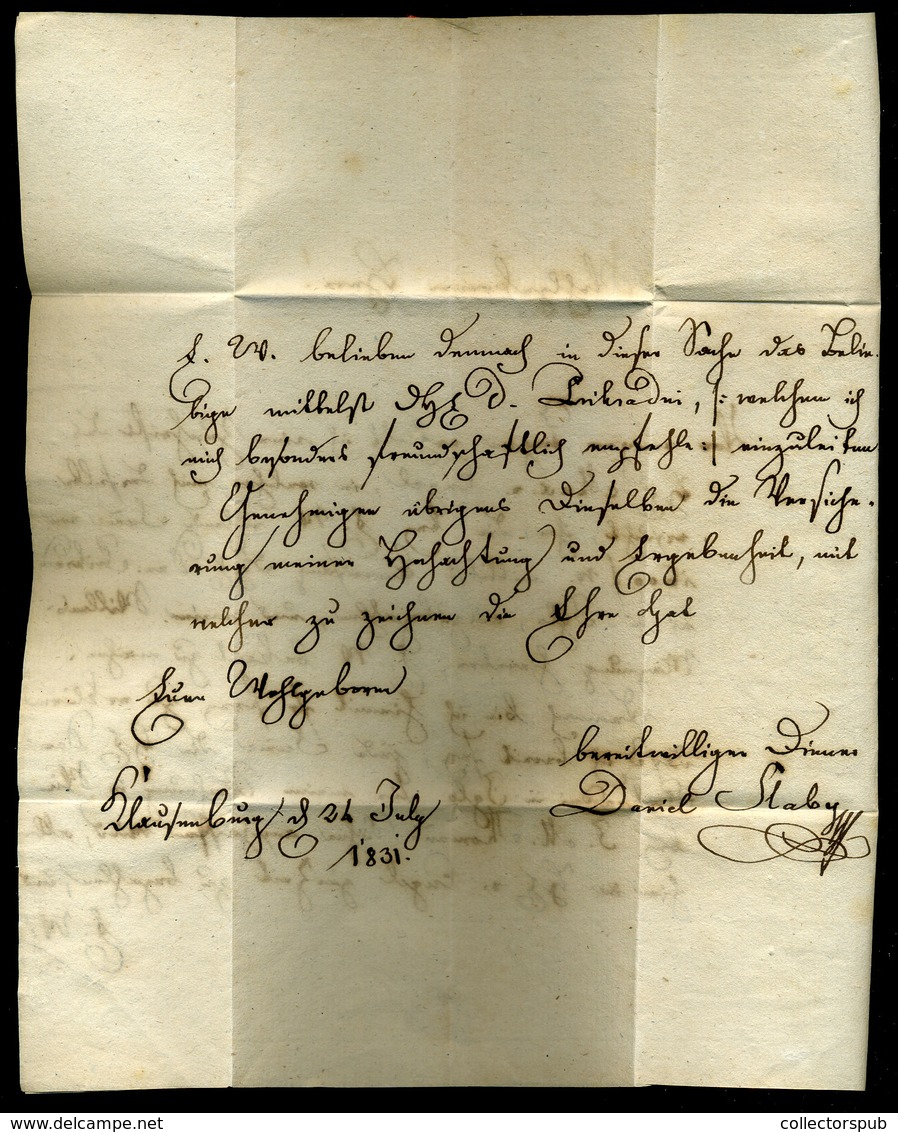 E. W. belieben demnach in dieser Sache das Belie-
bige mittelst d. , /: welchem ich
mich besonders freundschaftlich empfehle :/ einzuleiten
Genehmigen übrigens Dieselben die Versiche-
rung meiner Hochachtung und Ergebenheit, mit
welcher zu zeichnen die Ehre hat
Euer Wohlgeboren
bereitwilliger Diener
Klausenburg d 24 July Daniel Slaby
1831.
collectorspub